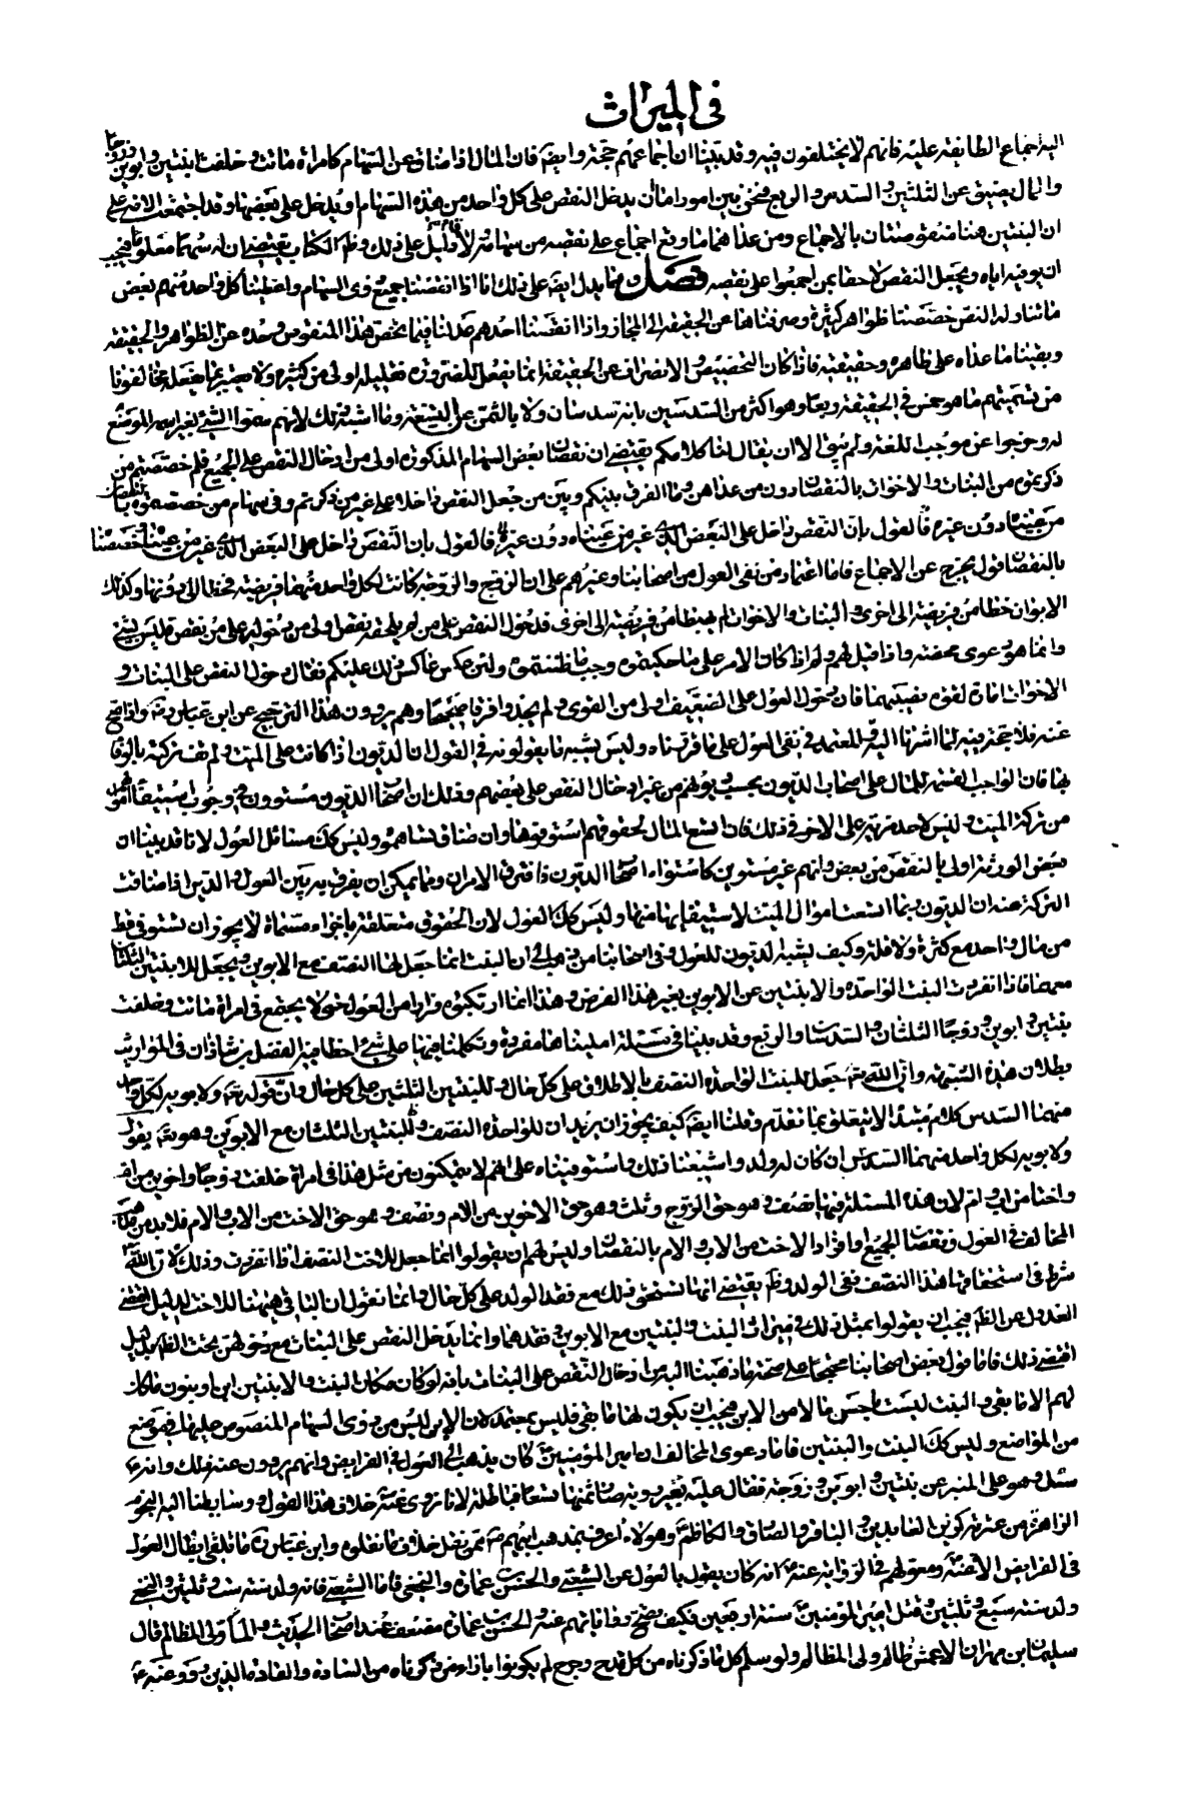 في الميراث
اليه اجماع الطايفة عليه فانهم لا يختلفون فيه وقد بينا ان اجماعهم حجة وايضا فان المال اذا ضاق عن السهام كامراة ماتت وخلفت ابنتين وابوين وزوجا
والمال يضيق عن الثلثين والسدسين والربع فنحن بين امور اما ان يدخل النقص على كل واحد من هذه السهام او يدخل على بعضها وقد اجتمعت الامة على
ان البنتين هنا منقوصتان بالاجماع ومن عداهما ما وقع اجماع على نقصه من سهامه ولا دليل على ذلك وظ الكتاب يقتضي ان له سهما معلوما فيجب
ان يوفيه اياه ويجعل النقص لاحقا بمن اجمعوا على نقصه فصل ومما يدل ايضا على ذلك انا اذا نقصنا جميع ذوي السهام واعطينا كل واحد منهم بعض
ما تناوله النص خصصنا ظواهر كثيرة وصرفناها عن الحقيقة الى المجاز واذا نقصنا احدهم عدلنا فيما يخص هذا المنقوص وحده عن الظواهر والحقيقة
وبقينا ما عداه على ظاهره وحقيقته فاذا كان التخصيص والانصراف عن الحقيقة انما يفعل للضرورة فقليله اولى من كثيره ولا
من تسميتهم ما هو خمس في الحقيقة ربعا وهو اكثر من السدسين بانه سدسان ولا بالثمن عن التسع وما اشبه ذلك لانهم سموا الشيء بغير اسمه الموضوع
له وخرجوا عن موجب اللغة ولم يبق الا ان يقال لنا كلامكم يقتضي ان نقصان بعض السهام المذكورة اولى من ادخال النقص على الجميع فلم خصصتم من
ذكرتموه من البنات والاخوات بالنقصان دون من عداهن وما الفرق بينكم وبين من جعل النقص داخلا على غير من ذكرتم وفي سهام من خصصتموه بالنقصان
من عيناه دون غيره فالقول بان النقص داخل على البعض الذي غير من عيناه دون غيره فالقول بان النقص داخل على البعض الذي غير من عيناه وخصصناه
بالنقصان قول يخرج عن الاجماع فاما اعتماد من نفى العول من اصحابنا وغيرهم على ان الزوج والزوجة كانت لكل واحد منهما فريضة فحطا الى دونها وكذلك
الابوان حطا من فريضة الى اخرى والبنات والاخوات لم يهبطا من فريضة الى اخرى فدخول النقص على من لم يلحقه نقص اولى من دخوله على من نقص فليس بشيء
وانما هو دعوى محضة واذا قيل لهم ولم اذا كان الامر على ما حكيتموه وجب ما ظننتموه ولئن عكس عاكس ذلك عليكم فقال دخول النقص على البنات و
عنه فلا حجة فيه لما اشرنا اليه فالمعتمد في نفي العول على ما قررناه وليس يشبه ما يقولونه في العول ان الديون اذا كانت على الميت ولم تف تركته بالوفاء
بها فان الواجب القسمة للمال على اصحاب الديون بحسب ديونهم من غير ادخال النقص على بعضهم وذلك ان اصحاب الديون مستوون في وجوب استيفاء اموالهم
من تركة الميت وليس لاحد مزية على الاخر في ذلك فان اتسع المال لحقوقهم استوفوها وان ضاق تساهموه وليس كك مسائل العول لانا قد بينا ان
بعض الورثة اولى بالنقص من بعض وانهم غير مستوين كاستواء اصحاب الديون فافترق الامران ومما يمكن ان يفرق به بين العول والدين اذا ضاقت
التركة عنه ان الديون ربما اتسعت اموال الميت لاستيفائها منها وليس كك العول لان الحقوق متعلقة باجزاء مسماة لا يجوز ان تستوفى قط
من مال واحد مع كثرة ولا قلة وكيف يشبه الديون للعول وفي اصحابنا من ذهب الى ان البنت انما جعل لها النصف مع الابوين ويجعل للابنتين الثلثان
معهما فاذا انفردت البنت الواحدة والابنتين عن الابوين بغير هذا الفرض وهذا انما ارتكبوه فرارا من العول حتى لا يجتمع في امراة ماتت وخلفت
بنتين وابوين وزوجا الثلثان والسدسان والربع وقد بينا في مسئلة امليناها مفردة وتكلمنا فيها على شيء اخطا فيه الفضل بن شاذان في المواريث
بطلان هذه الشبهة وان الله تع جعل للبنت الواحدة النصف بالاطلاق على كل حال وللبنتين الثلثين على كل حال وان قوله تع ولابويه لكل واحد
منهما السدس كلام مبتدا لا يتعلق بما تقدم وقلنا ايضا كيف يجوز ان يريد ان للواحدة النصف وللبنتين الثلثان مع الابوين وهو تع يقول
ولابويه لكل واحد منهما السدس ان كان له ولد واشبعنا ذلك واستوفيناه على انهم لا يتمكنون من مثل هذا في امراة خلفت زوجا واخوين من ام
واختا من اب وام لان هذه المسئلة فيها نصف وهو حق الزوج وثلث وهو حق الاخوين من الام ونصف وهو حق الاخت من الاب والام فلا بد من
المخالف في العول ونقصان الجميع او افراد الاخت من الاب والام بالنقصان وليس لهم ان يقولوا انما جعل للاخت النصف اذا انفردت وذلك لان الله تع
شرط في استحقاقها هذا النصف نفي الولد وظ يقتضي انها تستحق ذلك مع فقد الولد على كل حال وانما نقول ان الباقي للاخت لدليل اقتضى
العدول عن الظ فيجب ان يقولوا بمثل ذلك في ميراث البنت والبنتين مع الابوين وفقدهما وانما يدخل النقص على البنات مع دخولهن تحت الظ لدليل
اقتضى ذلك فاما قول بعض اصحابنا محتجا على صحة ما ذهبنا اليه من ادخال النقص على البنات بانه لو كان مكان البنت والابنتين ابن او بنون ما كان
لهم الا ما بقي والبنت ليست باحسن حالا من الابن فيجب ان يكون لها ما بقي فليس بمعتمد لان الابن ليس من ذوي السهام المنصوص عليها في موضع
من المواضع وليس كك البنت والبنتين فاما دعوى المخالف ان امير المؤمنين كان يذهب الى العول في الفرائض وانهم يروون عنه ذلك وانه ع
سئل وهو على المنبر عن بنتين وابوين وزوجة فقال عليه بغير روية صار ثمنها تسعا فباطلة لانا نروي عنه خلاف هذا القول ووسايطنا اليه النجوم
الزاهرة من عترته كزين العابدين والباقر والصادق والكاظم ع وهؤلاء اعرف بمذهب ابيهم ص ممن نقل خلاف ما نقلوه وابن عباس ره ما تلقى ابطال العول
في الفرايض الا عنه ومعولهم في الرواية عنه ع انه كان يقول بالعول عن الشعبي والحسن بن عمارة والنخعي فاما الشعبي فانه ولد سنة ست وثلثين والنخعي
ولد سنة سبع وثلثين وقتل امير المؤمنين سنة اربعين فكيف يصح رواياتهم عنه والحسن بن عمارة مضعف عند اصحاب الحديث ولما ولي المظالم قال
سليمان بن مهران الاعمش ظالم ولي المظالم ولو سلم كل ما ذكرناه من كل قدح وجرح لم يكونوا بازاء من ذكرناه من السادة والقادة الذين رووا عنه ع